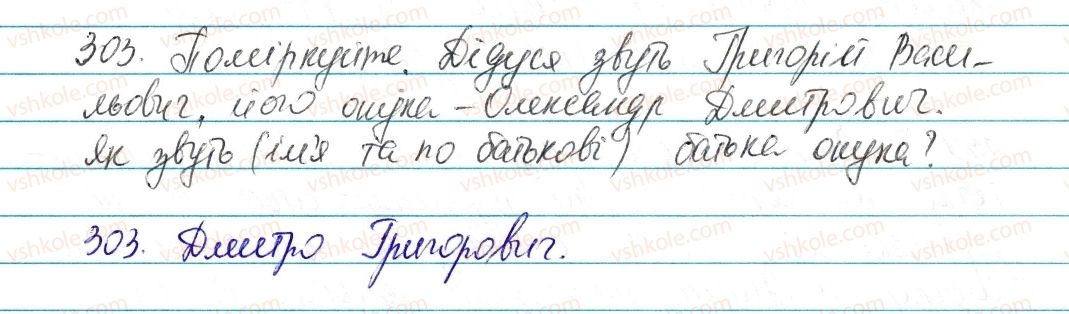 303. Поміркуйте. Дідуся звуть Григорій Васи-
льович, його онука - Олександр Дмитрович.
Як звуть (ім'я та по батькові) батька онука?
303. Дмитро Григорович.